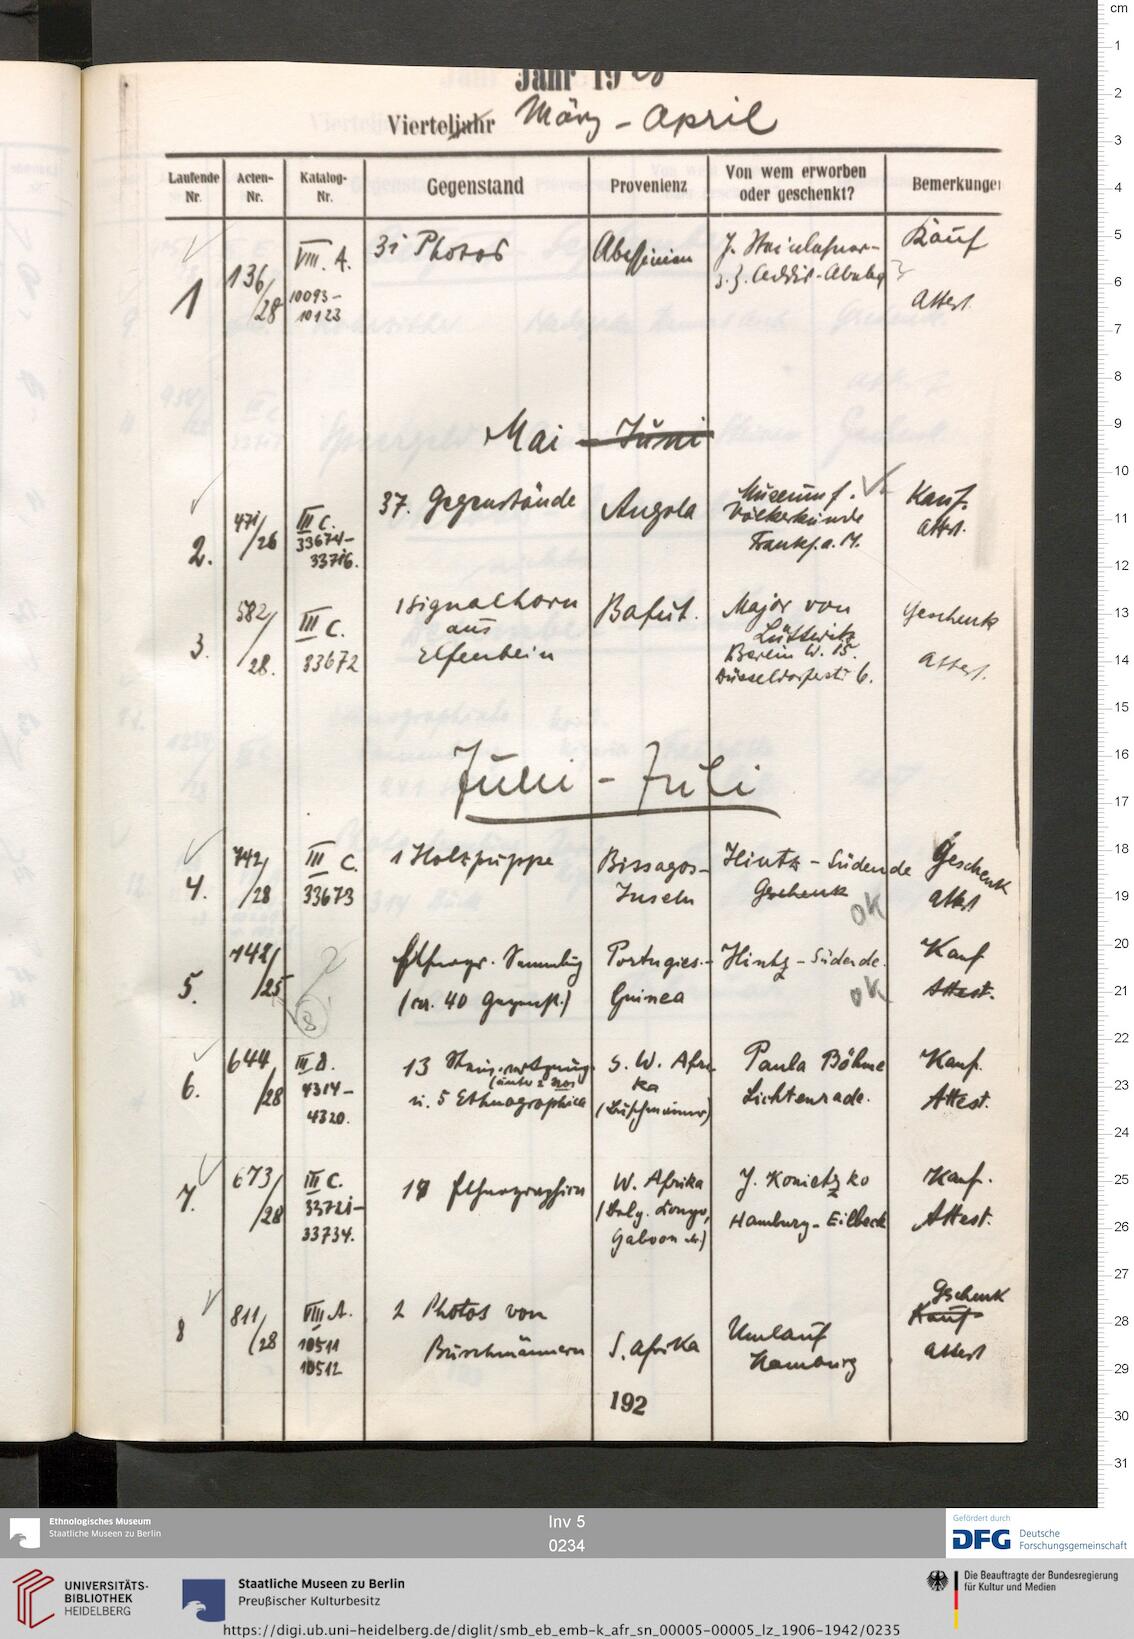 Jahr 1928
Vierteljahr März - April
Laufende Nr.
Acten-Nr.
Katalog-Nr.
Gegenstand
Provenienz
Von wem erworben oder geschenkt?
Bemerkungen
1
136/28
VIII. A.
10093-
10123
31 Photos
Abessinien
z. Z. Addis-Abeba
Kauf
Attest.
Mai - Juni
2.
471/26
III C.
33674-
33716.
37. Gegenstände
Angola
Museum f.
Völkerkunde
Frankf. a. M.
Kauf.
Attst.
3.
582/28.
III C.
33672
1 Signalhorn
aus
Elfenbein
Bafut.
Major von
Lüttwitz
Berlin W. 15.
Düsseldorferstr. 6.
Geschenk
Attest.
Juni - Juli
4.
742/28
III C.
33673
1 Holzpuppe
Bissagos-
Inseln
Hintz - Südende
Geschenk
OK
Geschenk
Attest
5.
742/25
?
3
Ethnogr. Sammlung
(ca. 40 Gegenst.)
Portugies.-
Guinea
Hintz - Südende.
OK
Kauf
Attest.
6.
644/28
III D.
4314-
4320.
13
u. 5 Ethnographica
S. W. Afri-
ka
(Buschmänner)
Paula Böhme
Lichtenrade.
Kauf.
Attest.
7.
673/28
III C.
33721-
33734.
Ethnographica
W. Afrika
(Belg. Kongo,
Gaboon etc.)
J. Konietzko
Hamburg-Eilbeck
Kauf.
Attest.
8
811/28
VIII A.
10511
10512
2 Photos von
Buschmännern
S. Afrika
Umlauf
Hamburg
Geschenk
Kauf
Attest
192
cm
1
2
3
4
5
6
7
8
9
10
11
12
13
14
15
16
17
18
19
20
21
22
23
24
25
26
27
28
29
30
31
Ethnologisches Museum
Staatliche Museen zu Berlin
Inv 5
0234
Gefördert durch
DFG Deutsche
Forschungsgemeinschaft
UNIVERSITÄTS-
BIBLIOTHEK
HEIDELBERG
Staatliche Museen zu Berlin
Preußischer Kulturbesitz
Die Beauftragte der Bundesregierung
für Kultur und Medien
https://digi.ub.uni-heidelberg.de/diglit/smb_eb_emb-k_afr_sn_00005-00005_lz_1906-1942/0235